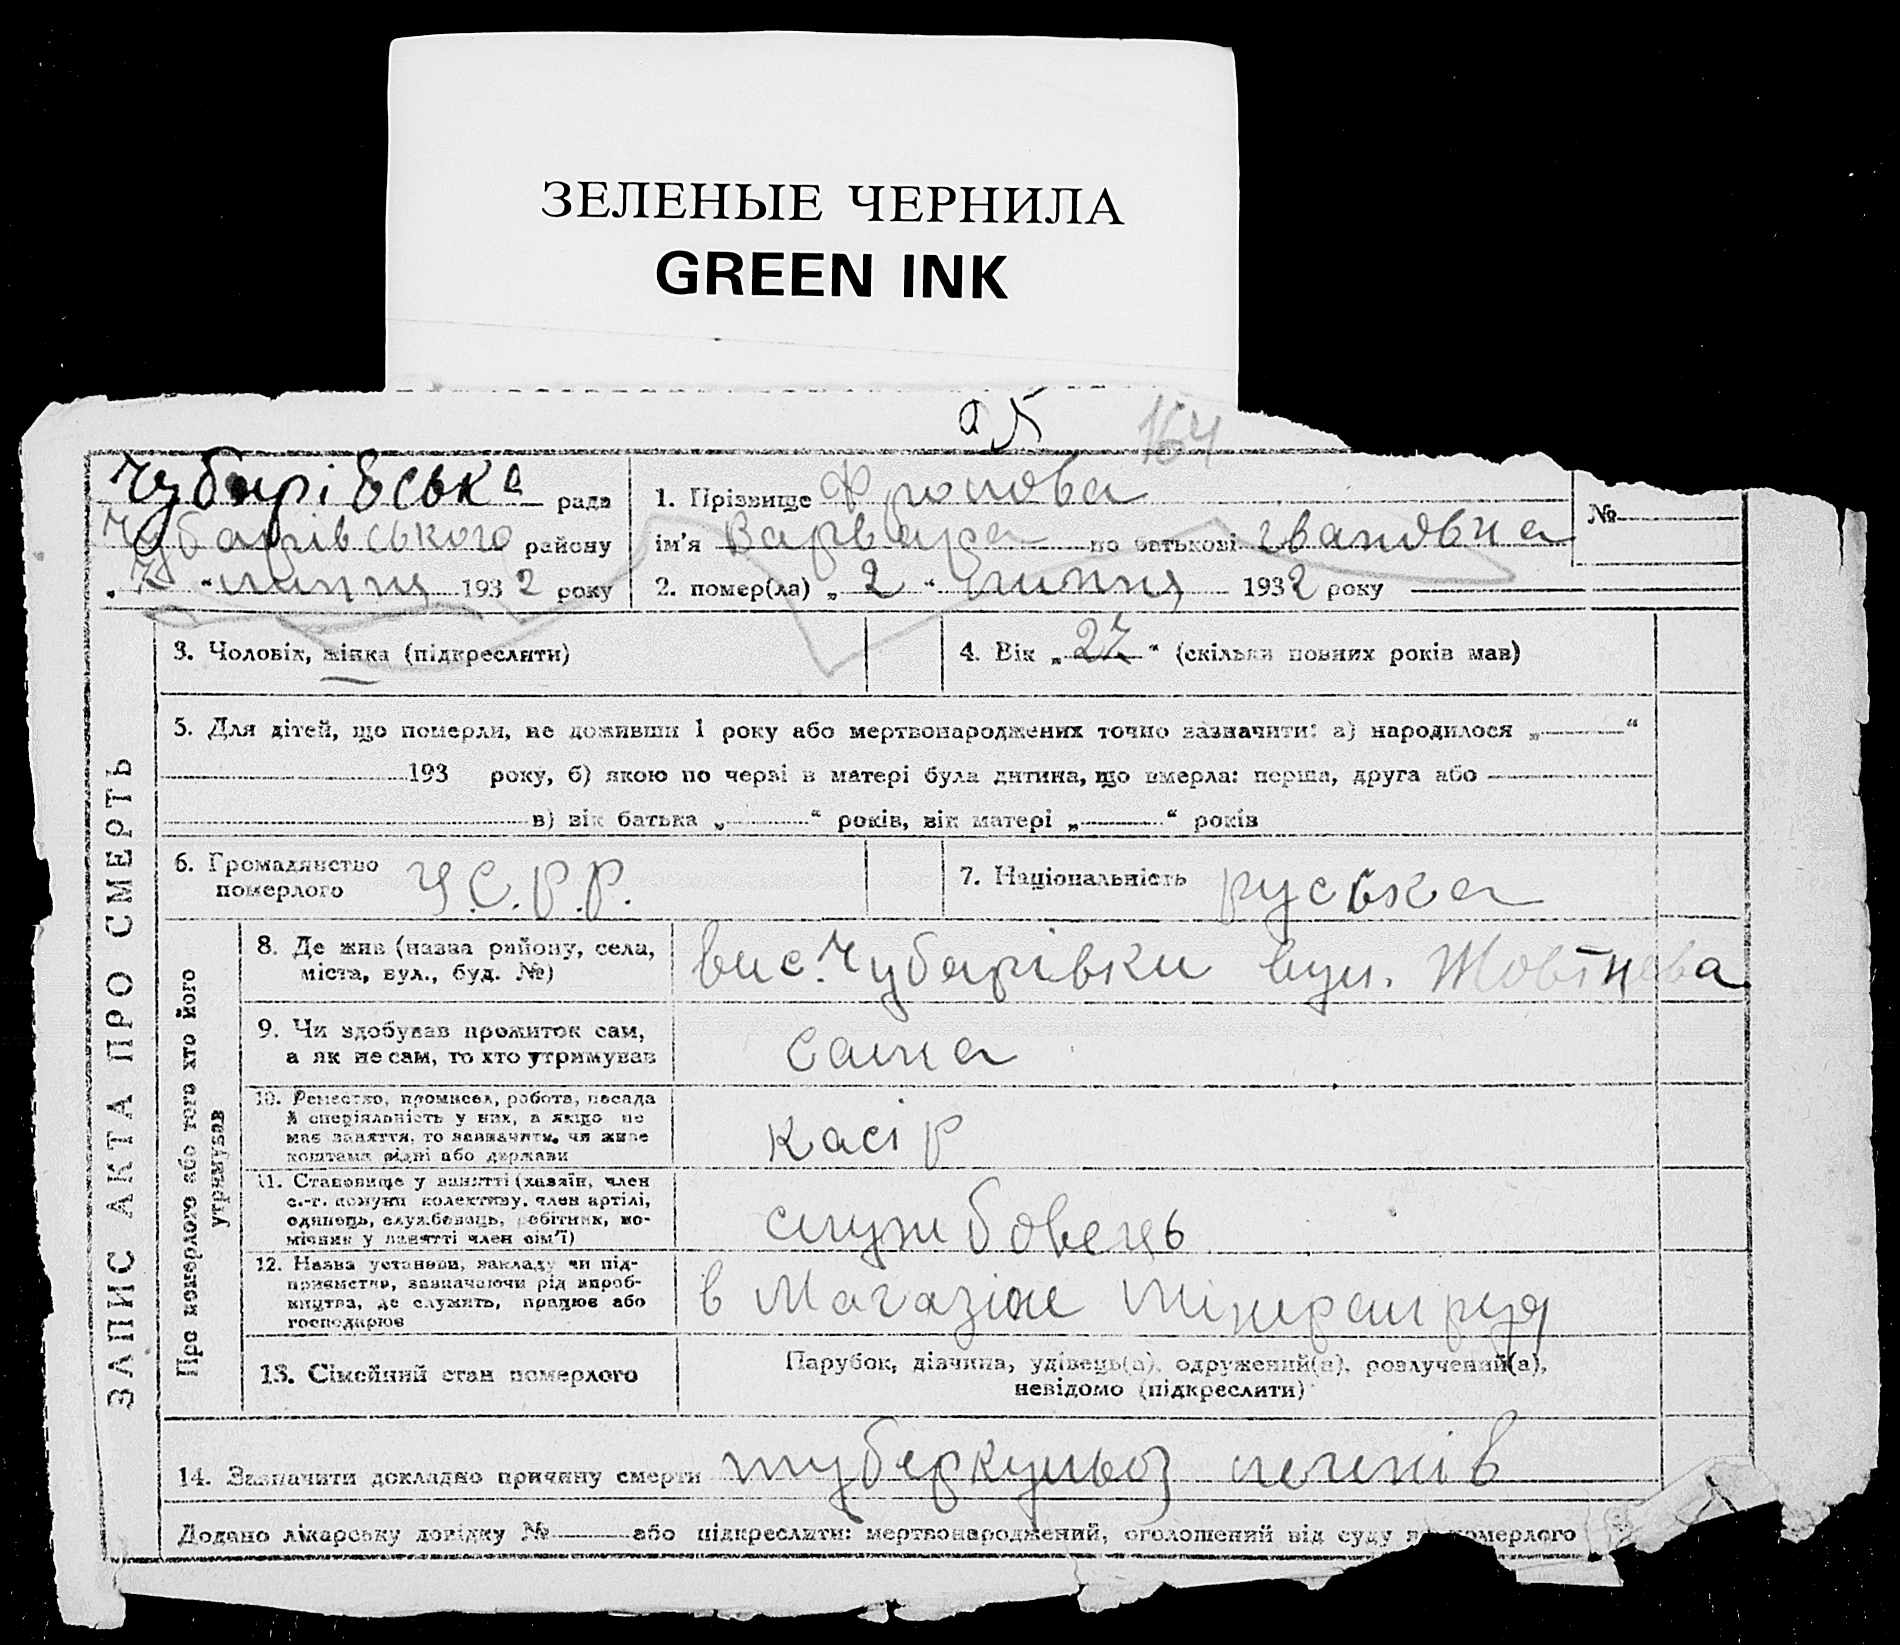 ЗЕЛЕНЫЕ ЧЕРНИЛА
GREEN INK
164
Чубарівська рада
Чубарівського району
„ 7 “ липня 1932 року
1. Прізвище Фролова
ім'я Варвара по батькові Івановна
2. помер(ла) „ 2 “ липня 1932 року
№
3. Чоловік, жінка (підкреслити)
4. Вік „ 27 “ (скільки повних років мав)
5. Для дітей, що померли, не доживши 1 року або мертвонароджених точно зазначити: а) народилося „ “
193 року, б) якою по черзі в матері була дитина, що вмерла: перша, друга або
в) вік батька „ “ років, вік матері „ “ років
6. Громадянство
померлого У.С.Р.Р.
7. Національність руська
ЗАПИС АКТА ПРО СМЕРТЬ
Про померлого або того хто його
утримував
8. Де жив (назва району, села,
міста, вул., буд. №)
вис. Чубарівки вул. Жовтнева
9. Чи здобував прожиток сам,
а як не сам, то хто утримував
сама
10. Ремество, промисел, робота, посада
й спеціяльність у них, а якщо не
має заняття, то зазначити, чи живе
коштами рідні або держави
касір
11. Становище у занятті (хазяїн, член
с.-г. комуни колективу, член артілі,
одинець, службовець, робітник, по-
мічник у занятті член сім'ї)
службовець
12. Назва установи, закладу чи під-
приємства, зазначаючи рід вироб-
ництва, де служить, працює або
господарює
в Магазіне Мінералруд
13. Сімейний стан померлого
Парубок, дівчина, удівець(а), одружений(а), розлучений(а),
невідомо (підкреслити)
14. Зазначити докладно причину смерти туберкульоз легенів
Додано лікарську довідку № або підкреслити: мертвонароджений, оголошений від суду померлого